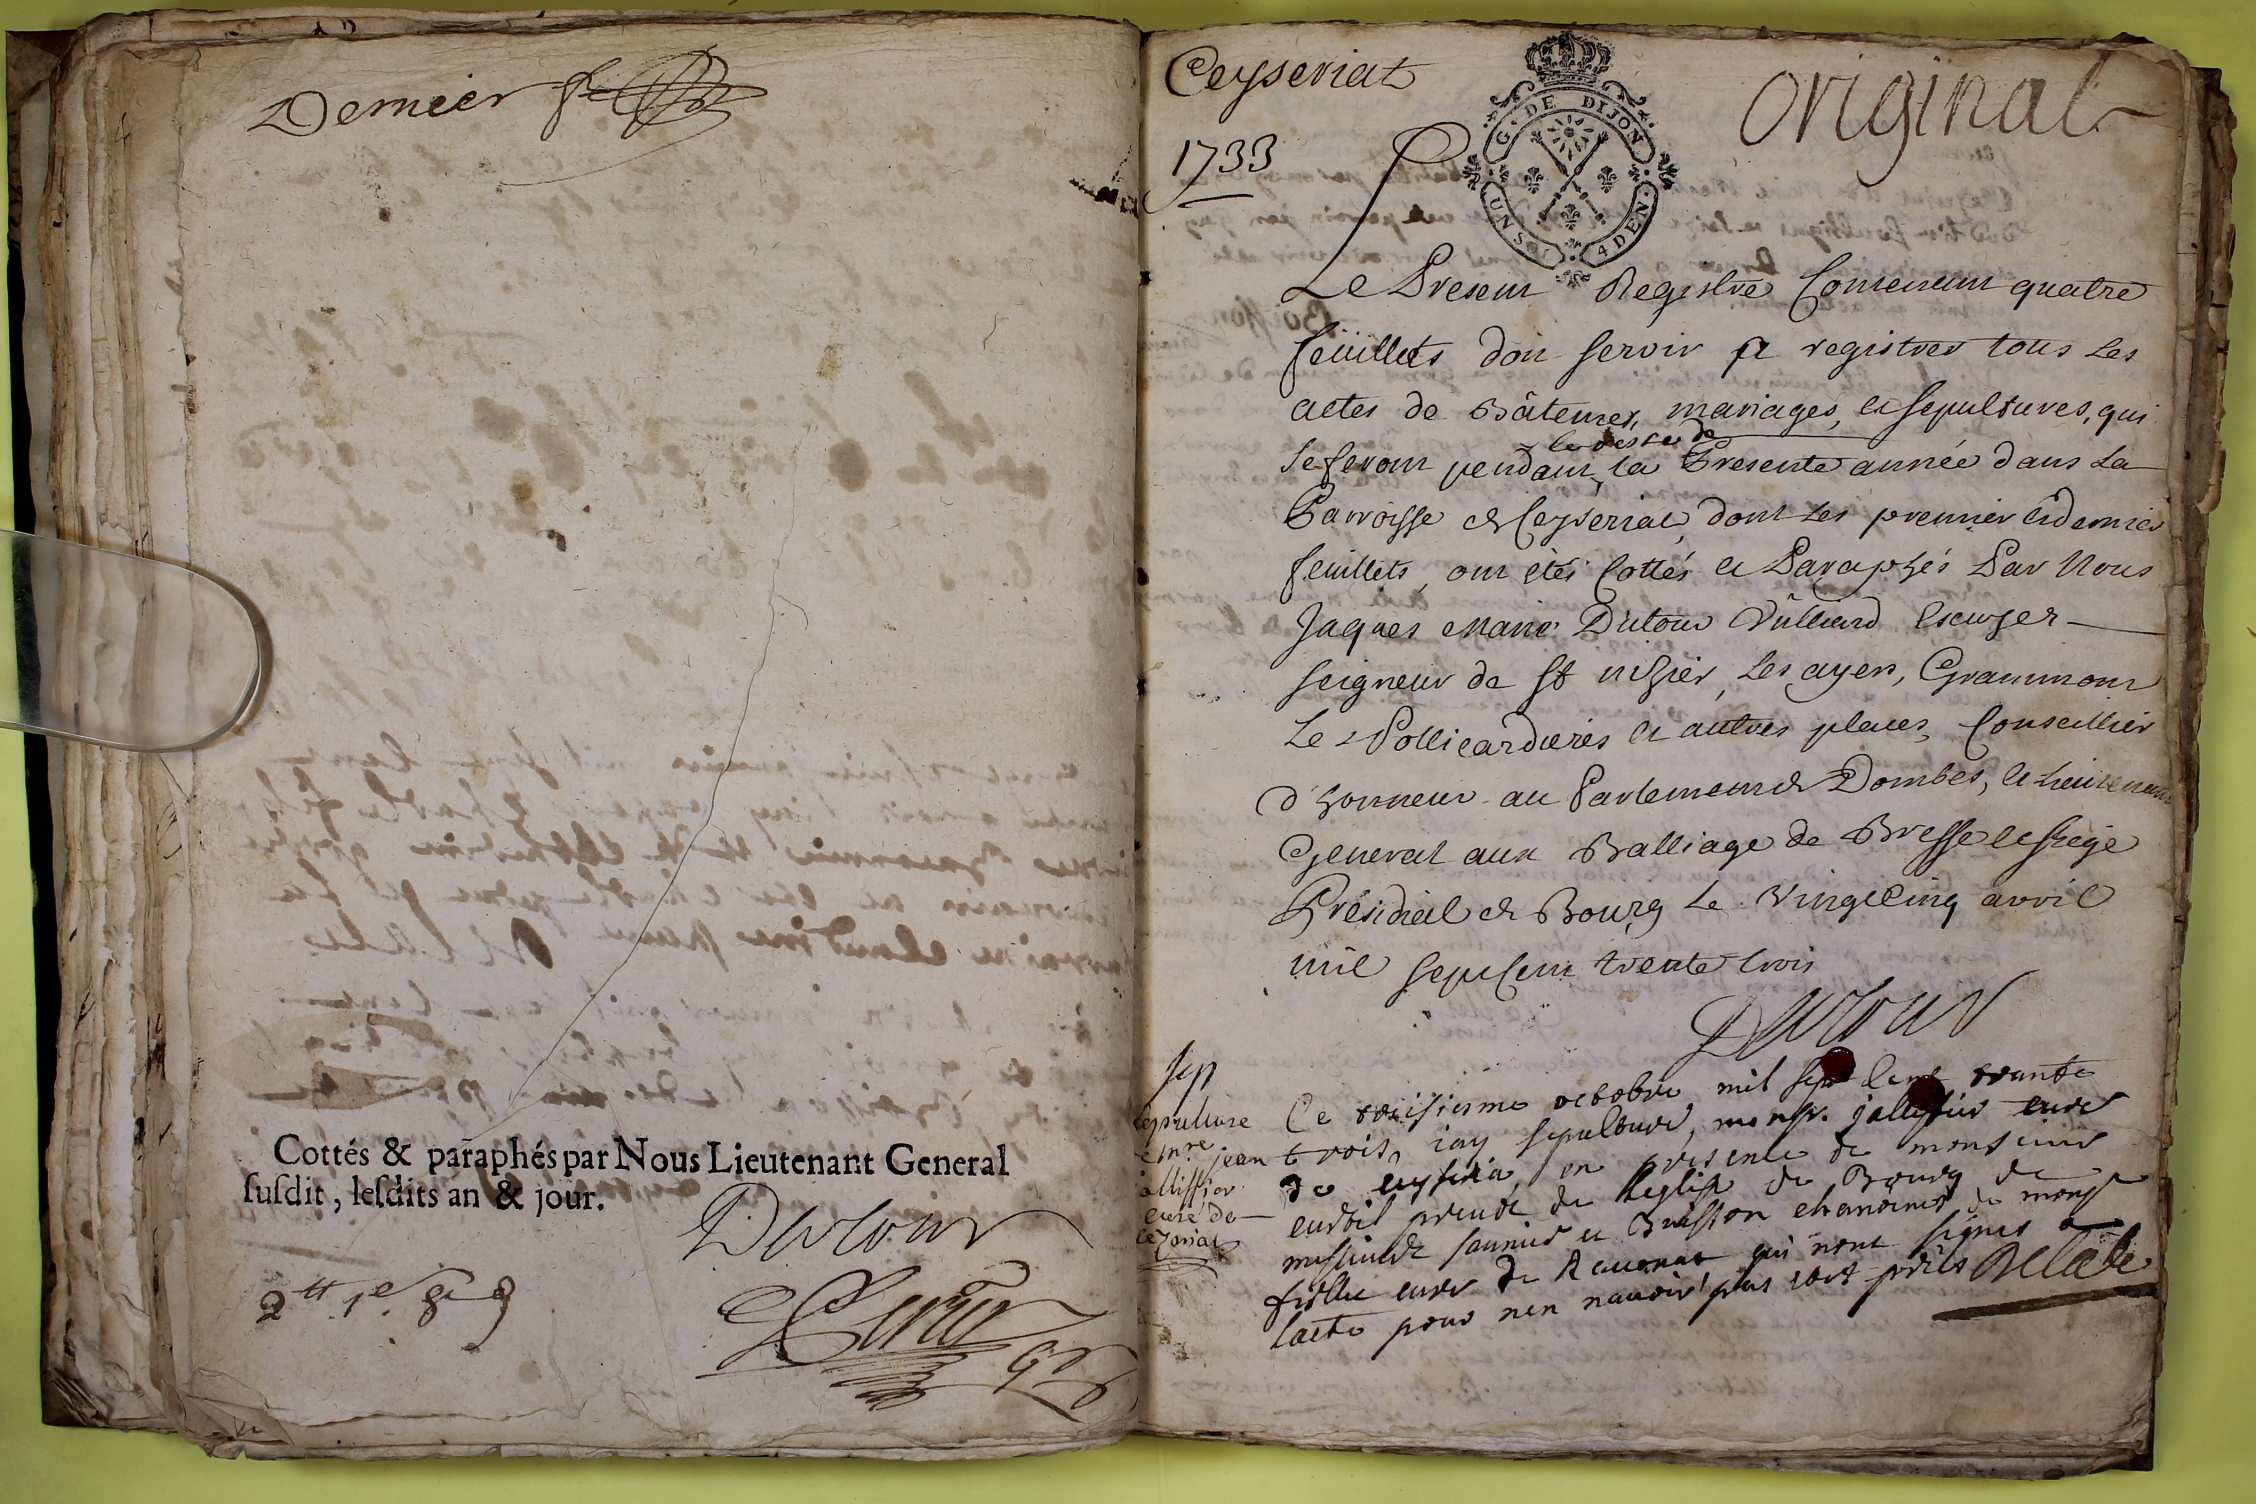 Dernier f
Cottés & parãphés par Nous Lieutenant General
suſdit, leſdits an & jour.
Dutour
Ceyseriat
1733
G. DE DIJON
UN SOL 4 DEN.
original
Le Present Registre Contenant quatre
feüillets doit servir a registrer tous Les
actes de Bâtemes, mariages, et sepultures, qui
le reste de
se feront pendant la Presente année dans La
Parroisse de Ceyseriat, dont Les premier et dernier
feuillets, ont étés Cottés et Paraphés Par Nous
Jaques Marie Dutour Vûlliard Escuyer
seigneur de St nizier, Les ayes, Grammont
Le Pollicardieres et autres places, Conseillier
d'honneur au Parlement de Dombes, et Lieutenant
General aux Balliage de Bresse et siege
Présidial de Bourg Le Vingt Cinq avril
mil sept Cent trente trois
Dutour
sep
sepulture
mre jean
jallissior
curé de
Ce troisiesme octobre mil sept Cent trante
trois, iay sepulturé, monsr. curé
de en presence de monsieur
de leglise de Bourg de
messieurs et Buisson chanoines de monsr
curé de Reuonat qui nont signés a
lacte pour nen nauoir pas esté priés Delale